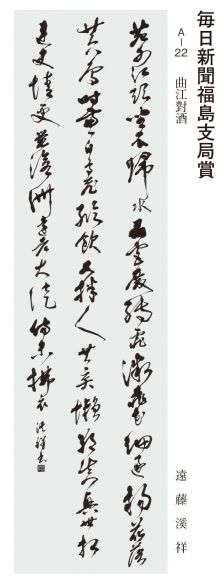 毎日新聞福島支局賞
A-22 曲江對酒
遠藤溪祥
苑外江頭坐不歸水精宮殿轉霏微桃花細逐楊花落
黃鳥時兼白鳥飛縱飲久拌人共棄懶朝真與世相
違吏情更覺滄洲遠老大徒傷未拂衣 溪祥書